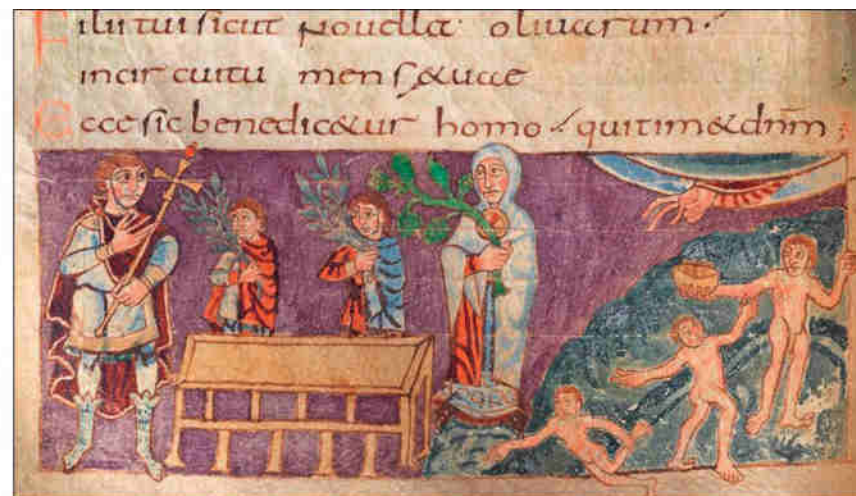 Filii tui sicut nouellae oliuarum·
in circuitu mensę tuae
Ecce sic benedicetur homo · qui timet dnm̄